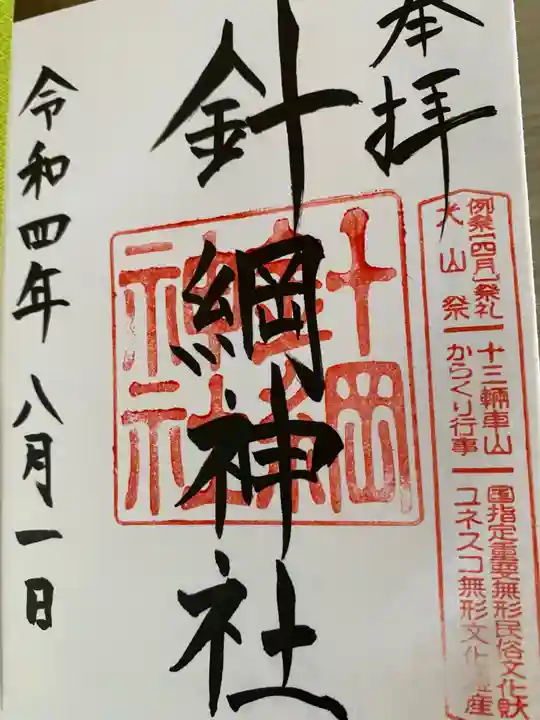 奉拝
例祭【四月】祭礼 十三輛車山 国指定重要無形民俗文化財
犬山祭 からくり行事 ユネスコ無形文化遺産
針綱神社
針綱神社
令和四年八月一日